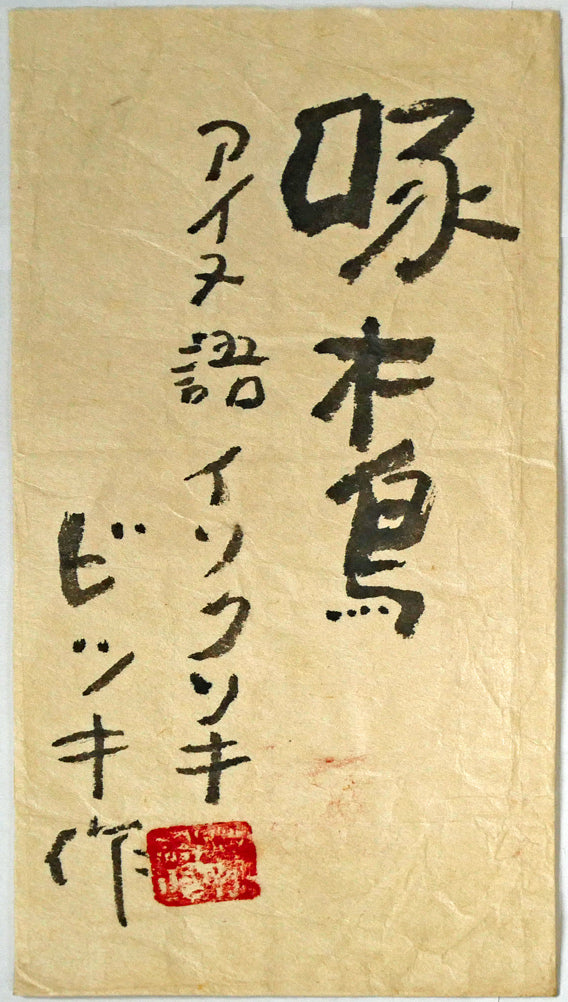 啄木鳥
アイヌ語 イソクソキ
ビッキ作